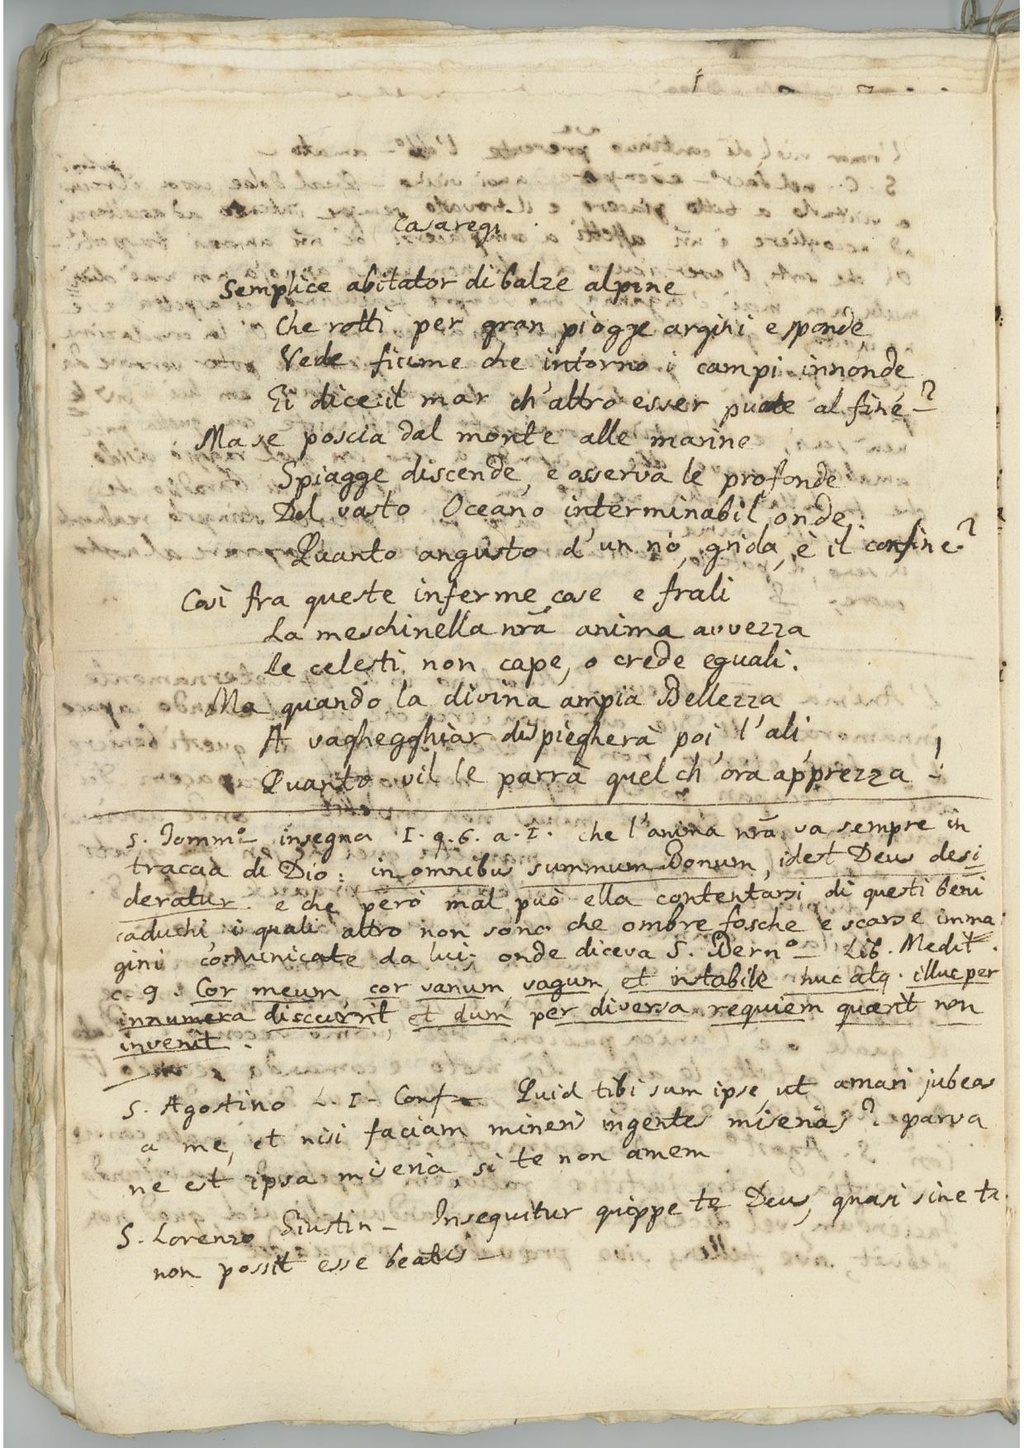 Casaregi
Semplice abitator di balze alpine
Che rotti per gran piogge argini e sponde
Vede fiume che intorno i campi innonde
Ei dice il mar ch'altro esser puote al fine?
Ma se poscia dal monte alle marine
Spiagge discende, e osserva le profonde
Del vasto Oceano interminabil onde:
Quanto angusto d'un rio, grida, è il confine?
Così fra queste inferme cose e frali
La meschinella nrã anima avvezza
Le celesti non cape, o crede eguali.
Ma quando la divina ampia Bellezza
A vaghegghiar dispiegherà poi l'ali,
Quanto vil le parrà quel ch'ora apprezza!
S. Tommº insegna I. q. 6. a. I. che l'anima nrã va sempre in
traccia di Dio: in omnibus summum Bonum, idest Deus desi
deratur. e che però mal può ella contentarsi di questi beni
caduchi i quali altro non sono che ombre fosche e scarse imma
gini comunicate da lui; onde diceva S. Bernº Lib. Medit.
c. 9. Cor meum, cor vanum, vagum, et instabile huc atq. illuc per
innumera discurrit et dum per diversa requiem quærit non
invenit.
S. Agostino L. I. Conf. Quid tibi sum ipse, ut amari jubeas
a me, et nisi faciam mineris ingentes miserias? parva
ne est ipsa miseria, si te non amem
S. Lorenzo Giustin- Insequitur quippe te Deus, quasi sine te
non possit esse beatus